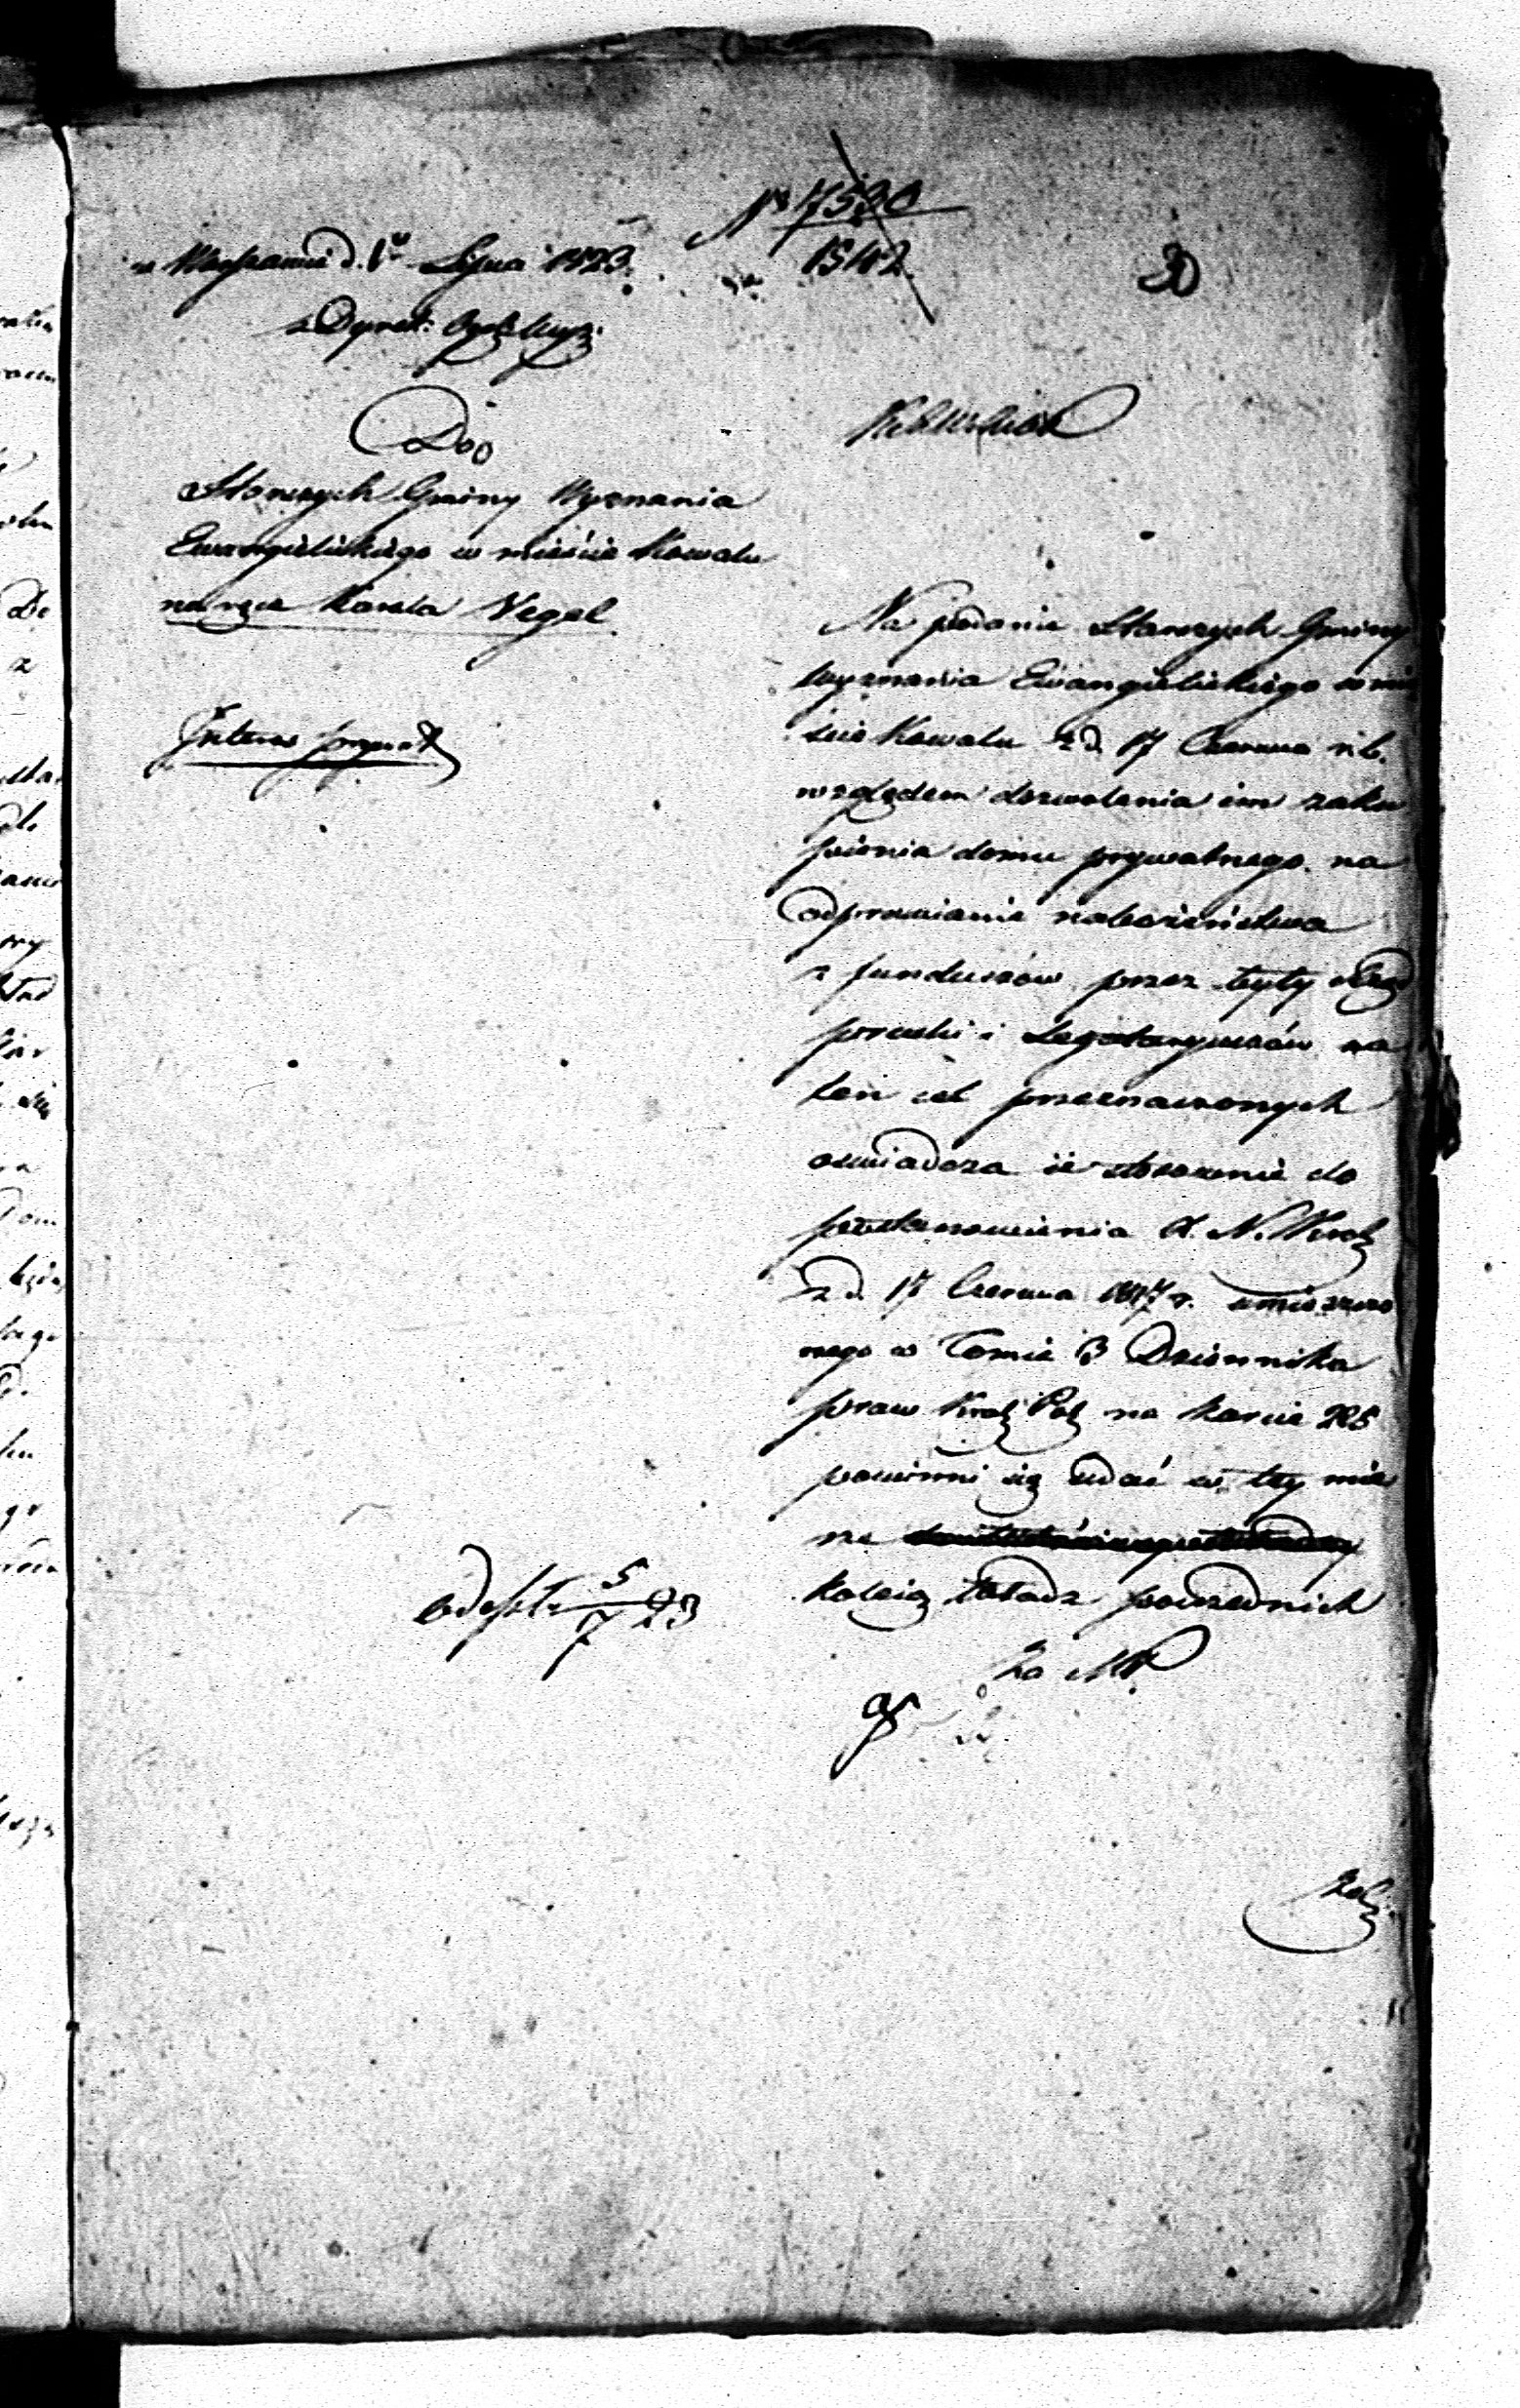 No 7530
1542
w Warszawie d. 1go Lipca 1823.
30
z Dyrekt:
Do
Starszych Gminy Wyznania
Ewangielickiego w mieście Kowalu
na ręce Karola Negel
Interes prywat
Na podanie Starszych Gminy
wyznania Ewangielickiego w mie
ście Kowalu z d. 17 Czerwca r. b.
względem dozwolenia im zaku
pienia domu prywatnego na
odprawianie nabożeństwa
z funduszów przez były Rząd
pruski i Legataryuszów na
ten cel przeznaczonych
oswiadcza iż stosownie do
postanowienia X. N. Król
z d. 17 Czerwca 1817 r. umieszczo
nego w Tomie 3 Dziennika
praw Król Pol na karcie 285
powinni się udać w tey mie
rze
koleią Władz pośrednich
Za MP
Odeszło 5/7 23